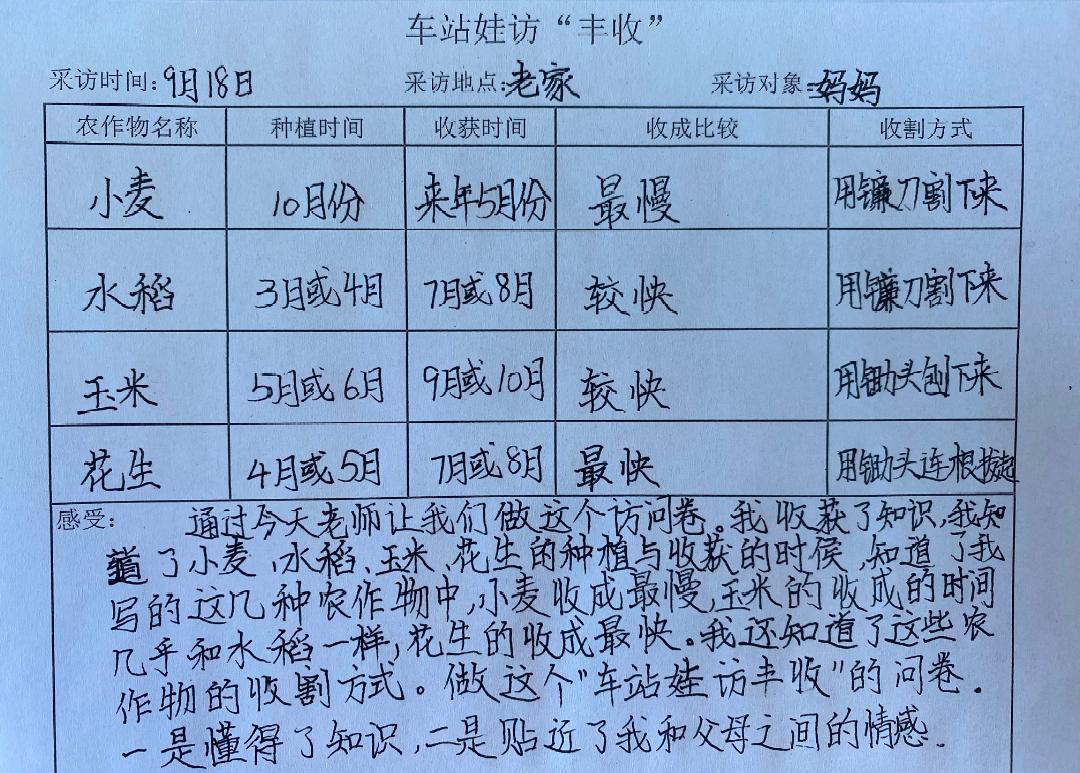 车站娃访“丰收”
采访时间:9月18日 采访地点:老家 采访对象:妈妈
农作物名称 种植时间 收获时间 收成比较 收割方式
小麦 10月份 来年5月份 最慢 用镰刀割下来
水稻 3月或4月 7月或8月 较快 用镰刀割下来
玉米 5月或6月 9月或10月 较快 用锄头刨下来
花生 4月或5月 7月或8月 最快 用锄头连根拔起
感受: 通过今天老师让我们做这个访问卷。我收获了知识,我知
道了小麦、水稻、玉米、花生的种植与收获的时候,知道了我
写的这几种农作物中,小麦收成最慢,玉米的收成的时间
几乎和水稻一样,花生的收成最快。我还知道了这些农
作物的收割方式。做这个“车站娃访丰收”的问卷.
一是懂得了知识,二是贴近了我和父母之间的情感.